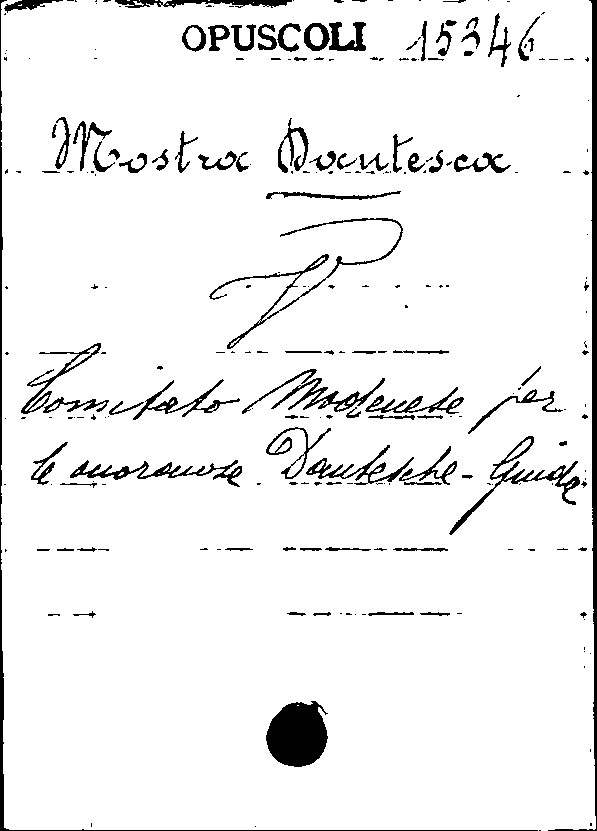 OPUSCOLI 15346
Mostra Dantesca
V
Comitato Modenese per
le onoranze Dantesche - Guida